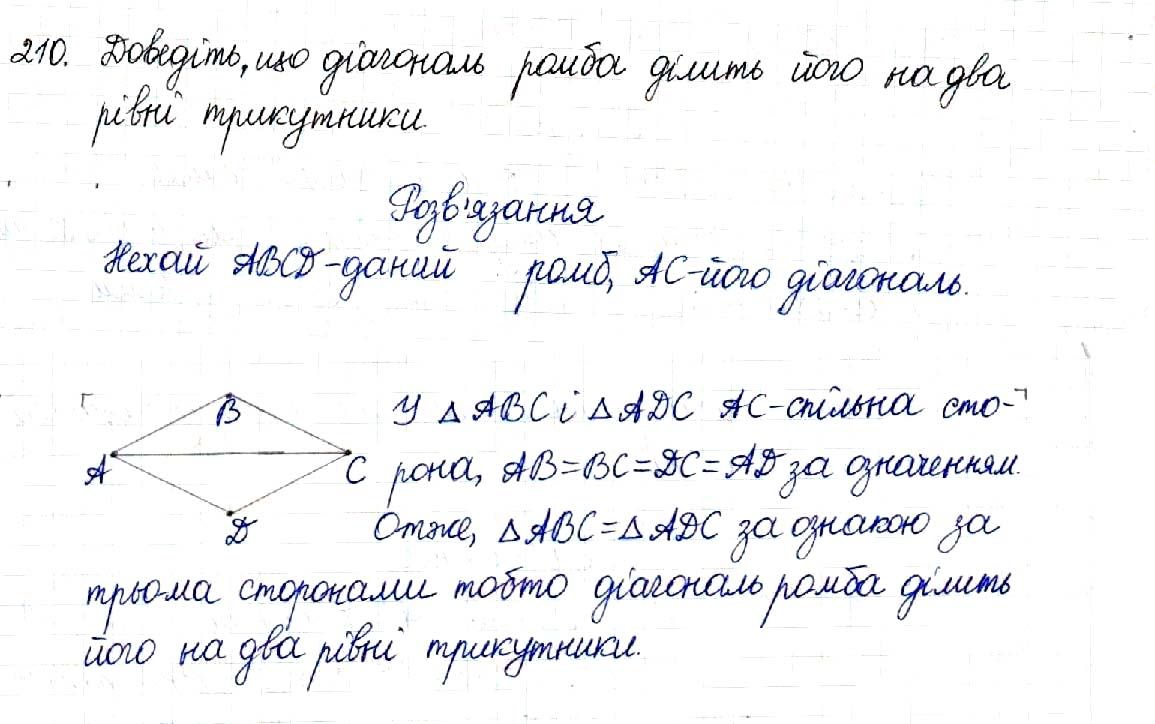 210. Доведіть, що діагональ ромба ділить його на два
рівні трикутники.
Розв'язання
Нехай ABCD-даний ромб, AC-його діагональ.
B
A
C
D
У △ABC і △ADC AC-спільна сто-
рона, AB=BC=DC=AD за означенням.
Отже, △ABC=△ADC за ознакою за
трьома сторонами тобто діагональ ромба ділить
його на два рівні трикутники.